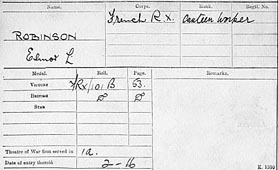 Name. Corps. Rank. Regtl. No.
French R X. Canteen Worker
ROBINSON
Ednor L
Medal. Roll. Page. Remarks.
VICTORY RX/101 B 53.
BRITISH do do
STAR
Theatre of War first served in 1a.
Date of entry therein 2-16
K. 1380